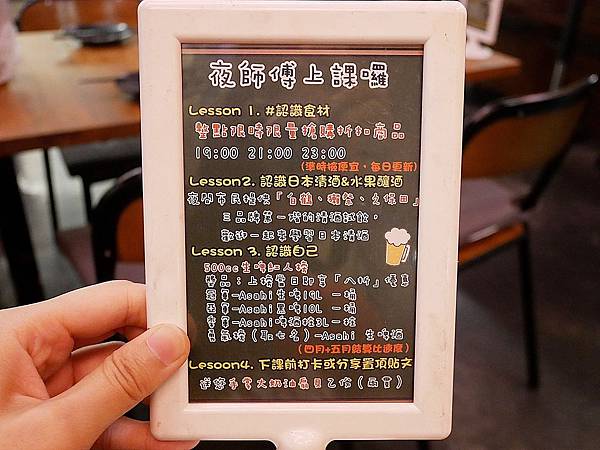 夜師傅上課囉
Lesson 1. #認識食材
整點限時限量搶購折扣商品
19:00 21:00 23:00
(準時撿便宜，每日更新)
Lesson2. 認識日本清酒&水果釀酒
夜間市民提供「白鶴、獺祭、久保田」
三品牌第一階的清酒試飲，
歡迎一起來學習日本清酒
Lesson 3. 認識自己
500cc生啤紅人榜
獎品：上榜當日Rp享「八折」優惠
冠軍-Asahi生啤19L 一桶
亞軍-Asahi黑啤10L 一桶
季軍-Asahi啤酒柱3L一柱
勇氣榜(取七名)-Asahi 生啤酒
(四月+五月結算比速度)
Lesoon4. 下課前打卡或分享置頂貼文
送您手掌大奶油扇貝乙份(兩質)